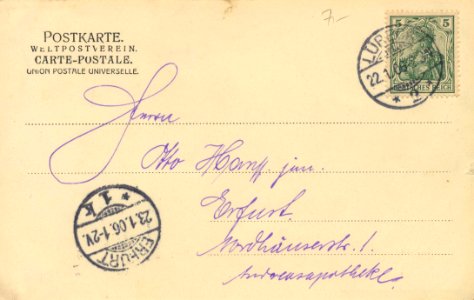 POSTKARTE.
WELTPOSTVEREIN.
CARTE-POSTALE.
UNION POSTALE UNIVERSELLE.
7.-
5 5
DEUTSCHES REICH
22.1.06
* 2
Herrn
Otto Hanff jun.
Erfurt.
Nordhäuserstr. 1
Andreasapotheke.
* 1k
23.1.06.1-2V.
ERFURT